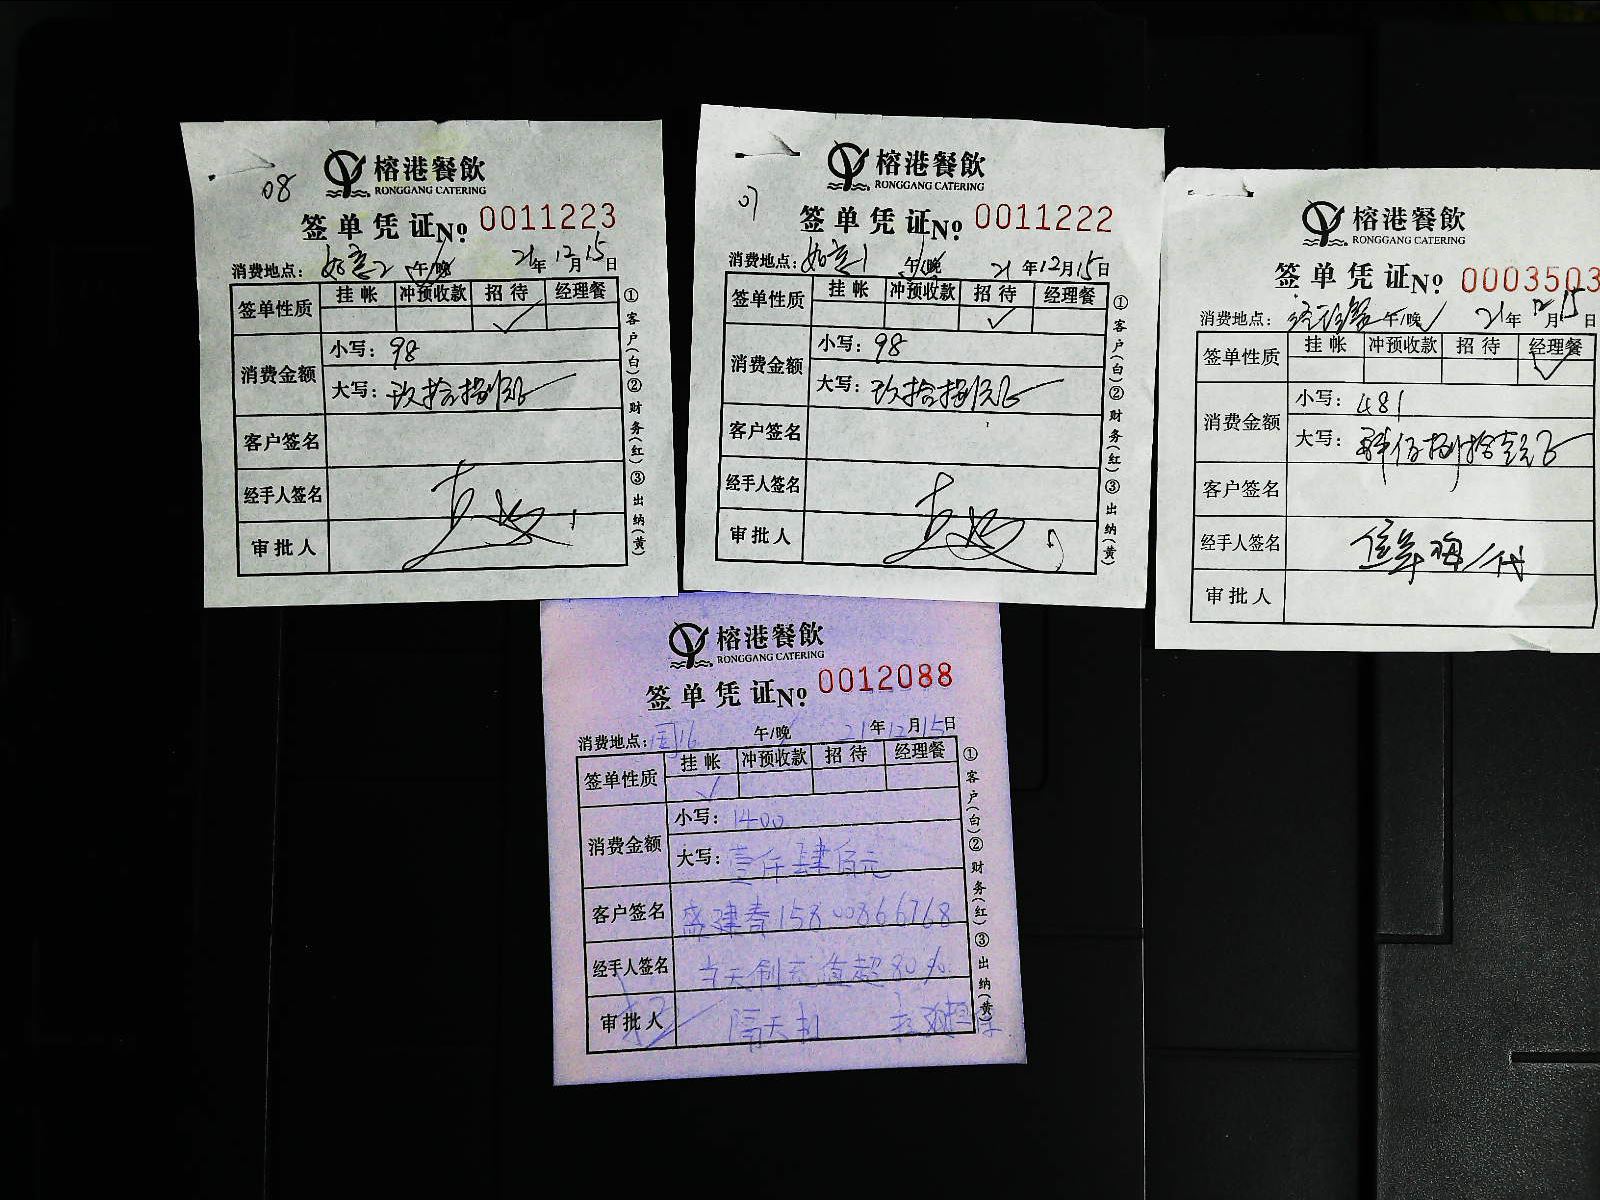 08
榕港餐飲
RONGGANG CATERING
签单凭证No. 0011223
消费地点: 如意2 午/晚 21年12月15日
签单性质 挂帐 冲预收款 招待 经理餐
✓
消费金额
小写: 98
大写: 玖拾捌元
客户签名
经手人签名
审批人
①客户(白)②财务(红)③出纳(黄)
07
榕港餐飲
RONGGANG CATERING
签单凭证No. 0011222
消费地点: 如意1 午/晚 21年12月15日
签单性质 挂帐 冲预收款 招待 经理餐
✓
消费金额
小写: 98
大写: 玖拾捌元
客户签名
经手人签名
审批人
①客户(白)②财务(红)③出纳(黄)
榕港餐飲
RONGGANG CATERING
签单凭证No. 0003503
消费地点: 经理餐 午/晚 21年12月15日
签单性质 挂帐 冲预收款 招待 经理餐
✓
消费金额
小写: 481
大写: 肆佰捌拾壹元
客户签名
经手人签名 /代
审批人
榕港餐飲
RONGGANG CATERING
签单凭证No. 0012088
消费地点: 16 午/晚 21年12月15日
签单性质 挂帐 冲预收款 招待 经理餐
✓
消费金额
小写: 1400
大写: 壹仟肆佰元
客户签名 盛建春15800866768
经手人签名 当天制充值超80%
审批人 隔天扣
①客户(白)②财务(红)③出纳(黄)